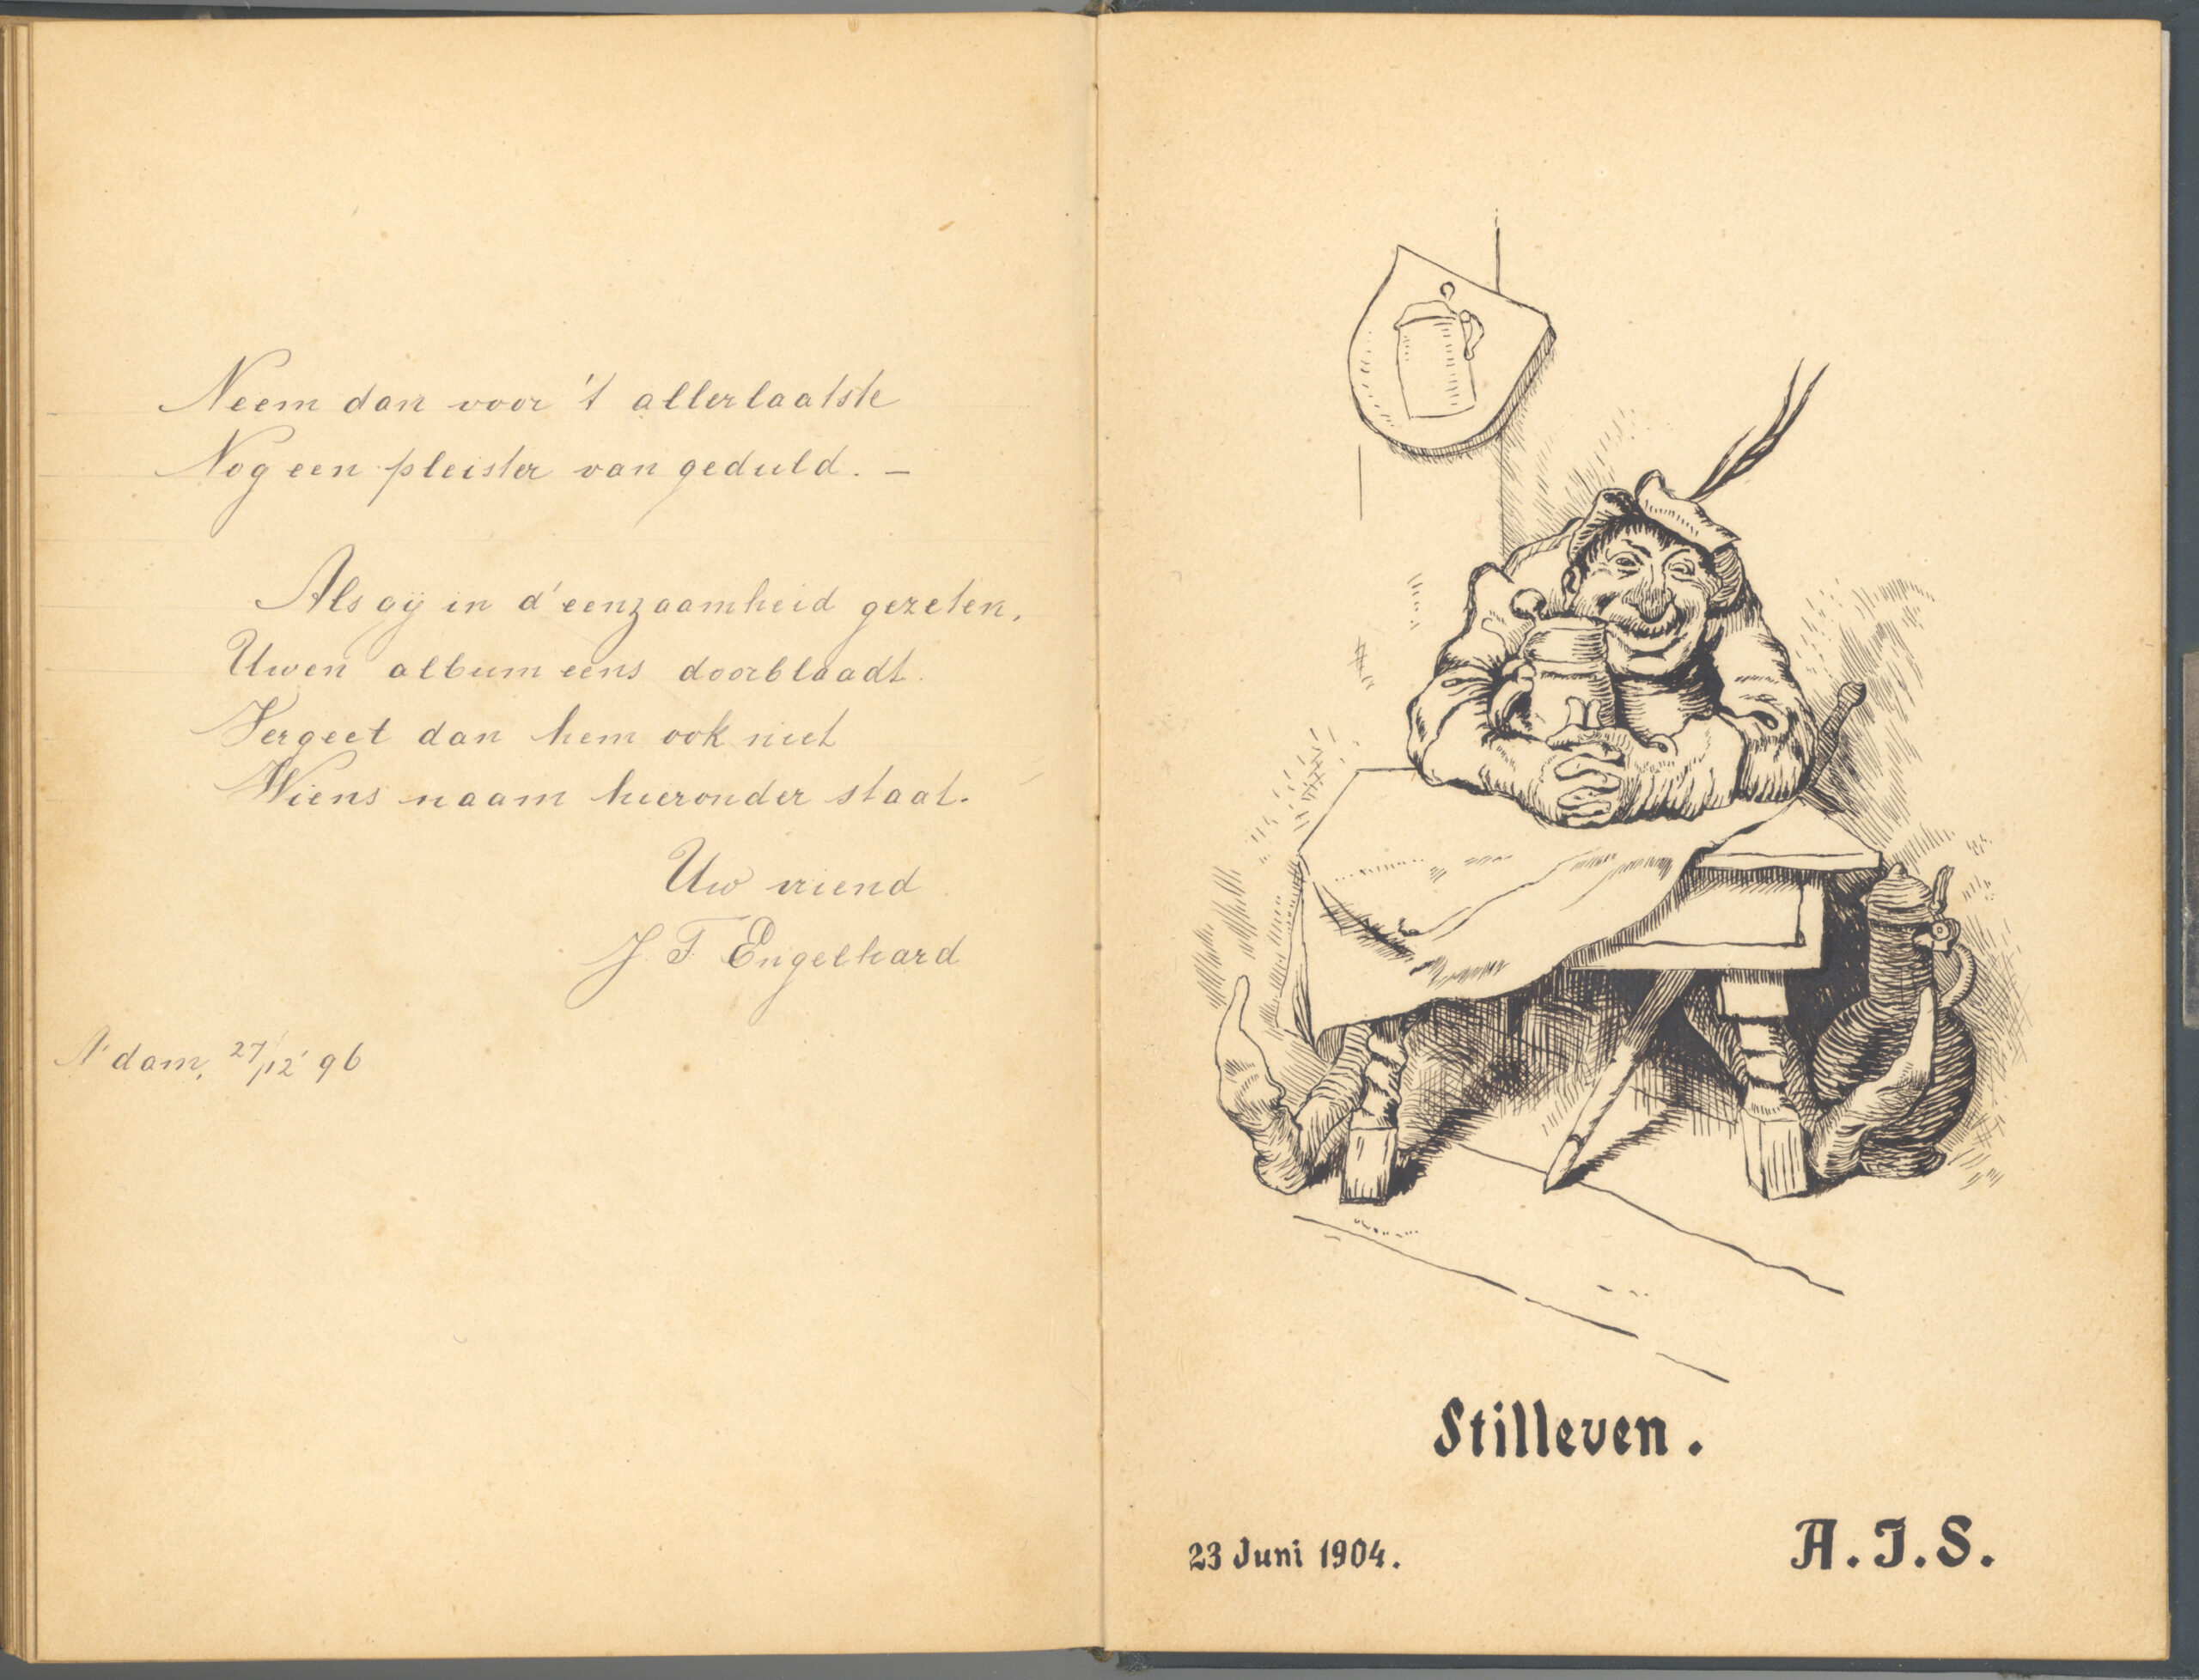 Neem dan voor 't allerlaatste
Nog een pleister van geduld. –
Als gij in d'eenzaamheid gezeten,
Uwen album eens doorblaadt.
Vergeet dan hem ook niet
Wiens naam hieronder staat.
Uw vriend
J. F. Engelhard
A'dam, 27/12 '96
Stilleven.
23 Juni 1904.
A. J. S.